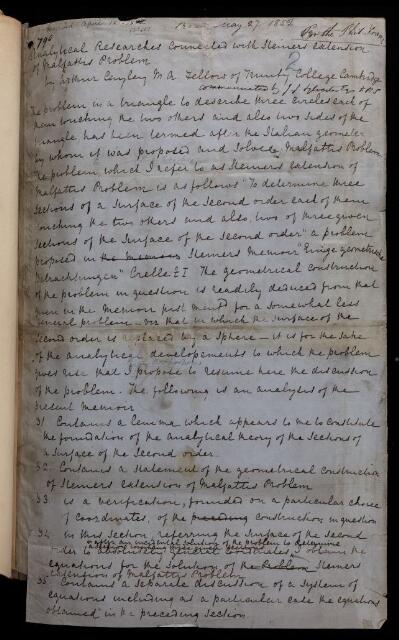 Read May 27. 1852
For the Phil. Trans.
Analytical Researches Connected with Steiners Extension
of Malfattis Problem
by Arthur Cayley M A Fellow of Trinity College Cambridge
2
Communicated by J J Sylvester Esq F R S
The problem in a triangle to describe three circles each of
them touching the two others and also two sides of the
triangle has been termed after the Italian geometer
by whom it was proposed and solved Malfattis Problem.
The problem which I refer to as Steiners extension of
Malfattis Problem is as follows "To determine three
sections of a surface of the second order each of them
touching the two others and also two of three given
sections of the surface of the second order" a problem
proposed in the memoir Steiners Memoir "Einige geometrische
Betrachtungen" Crelle t I The geometrical construction
of the problem in question is readily deduced from that
given in the memoir just ment for a somewhat less
general problem viz that in which the surface of the
second order is replaced by a Sphere – it is for the sake
of the analytical developements to which the problem
gives rise that I propose to resume here the discussion
of the problem. The following is an analysis of the
present memoir
§1 Contains a lemma which appears to me to constitute
the foundation of the analytical theory of the sections of
a surface of the second order.
§2. Contains a statement of the geometrical construction
of Steiners extension of Malfattis Problem
§3 is a verification, founded on a particular choice
of coordinates, of the preceding construction in question
§4. In this section, referring the surface of the second
order to
general coordinates, I obtain the
equations for the solution of the Problem Steiners
extension of Malfattis Problem
§5 Contains a separate discussion of a system of
equations including as a particular case the equations
obtained in the preceding section